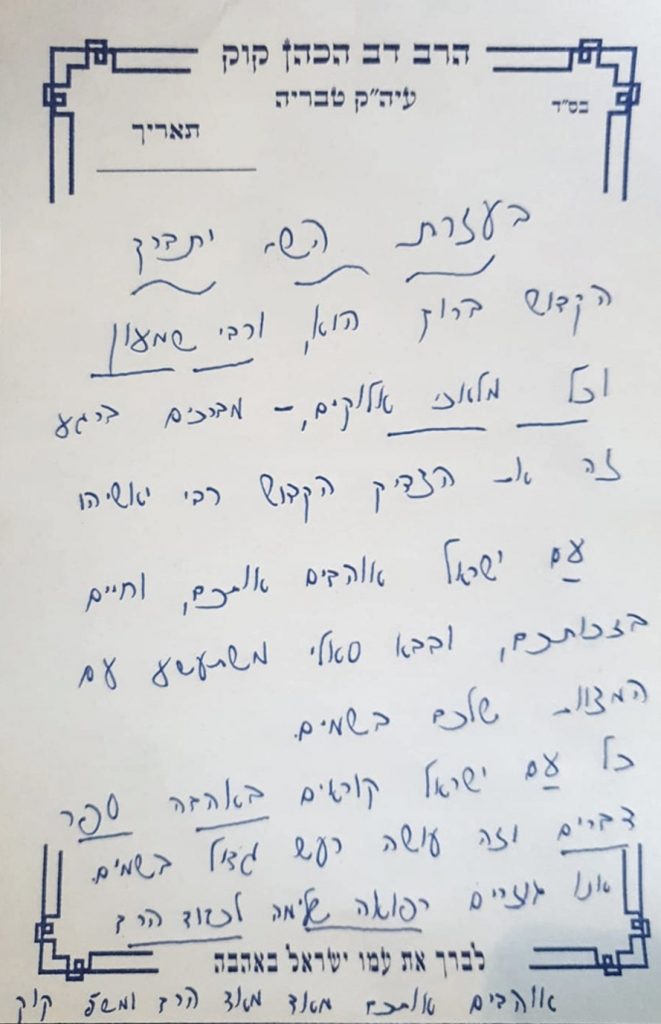 הרב דב הכהן קוק
עיה״ק טבריה
בס״ד
תאריך
בעזרת הש׳ יתברך
הקדוש ברוך הוא, ורבי שמעון
וכל מלאכי אלוקים, – מברכים ברגע
זה את הצדיק הקדוש רבי יאשיהו
עם ישראל אוהבים אותכם, וחיים
בזכותכם, ובבא סאלי משתעשע עם
המצוות שלכם בשמים.
כל עם ישראל קוראים באהבה ספר
דברים וזה עושה רעש גדול בשמים.
אנו גוזרים רפואה שלימה לכבוד הרב
לברך את עמו ישראל באהבה
אוהבים אותכם מאוד מאוד הרב ומשפ׳ קוק